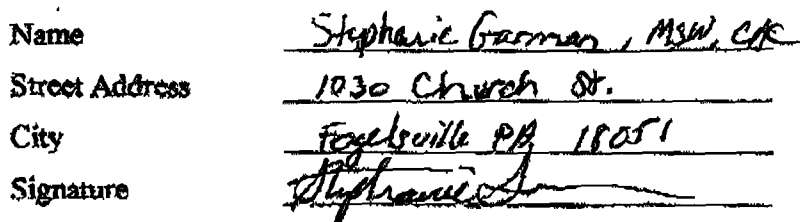 Name Stephanie Garman, MSW, CAC
Street Address 1030 Church St.
City Fogelsville PA 18051
Signature Stephanie